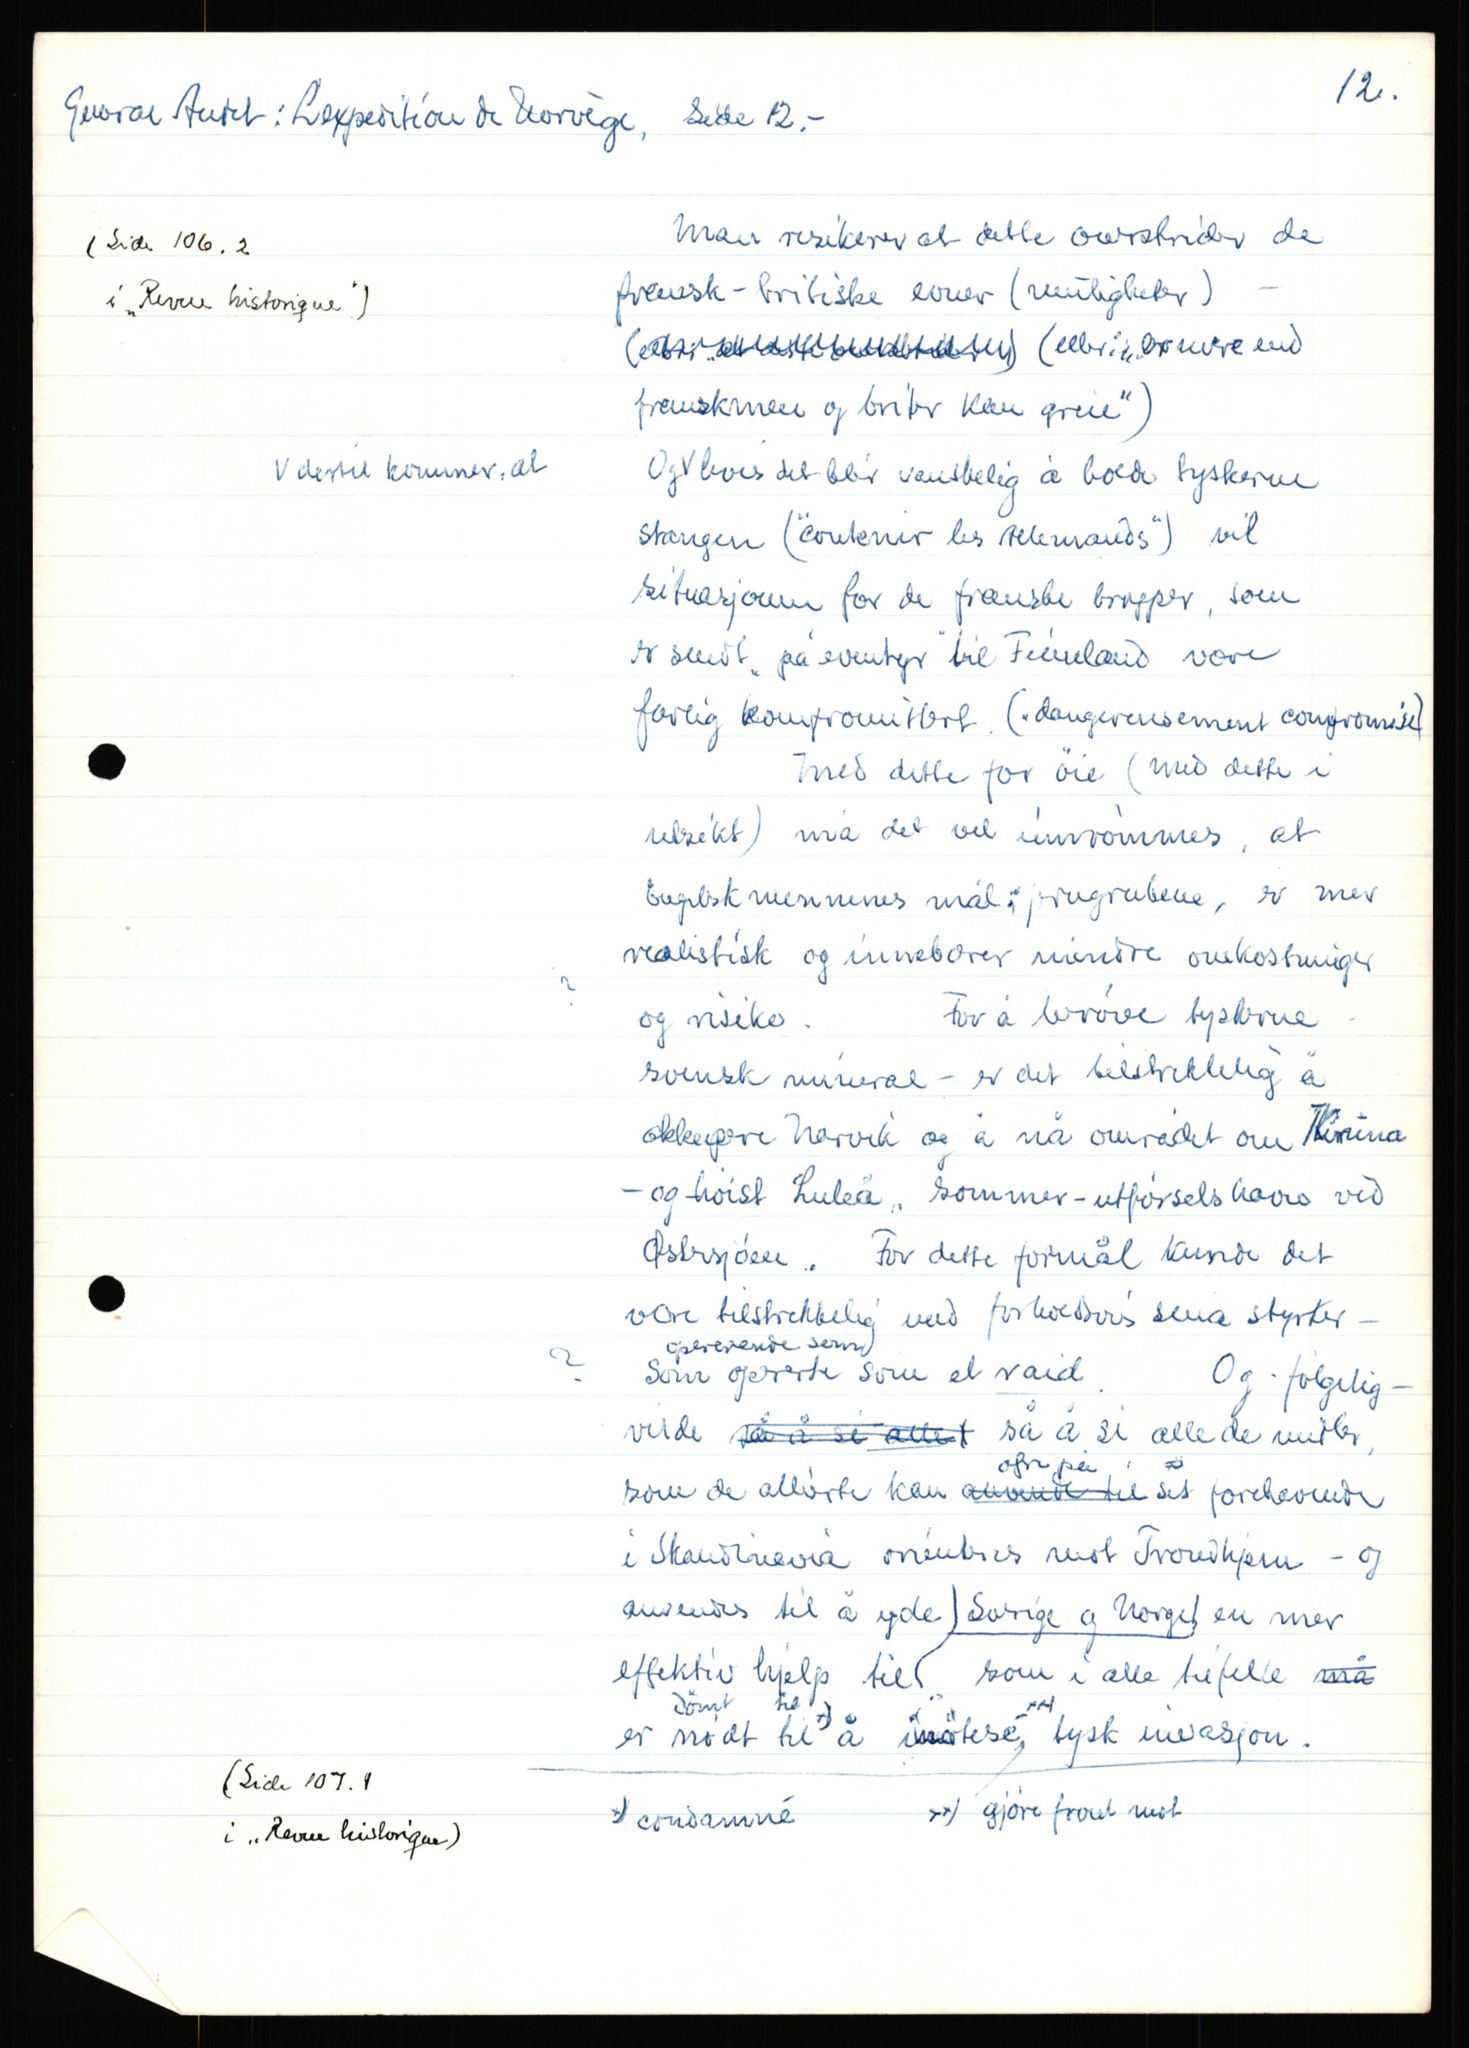 12.
General Audet: L'expedition de Norvège, Side 12.-
(Side 106.2
i „Revue historique")
Man risikerer at dette overstrider de
fransk-britiske evner (muligheter) -
(eller „er mere end
franskmen og briter kan greie")
V dertil kommer, at
Og V hvis det blir vanskelig å holde tyskerne
stangen ("contenir les Allemands") vil
situasjonen for de franske tropper, som
er sendt „på eventyr" til Finnland være
farlig kompromittert. („dangereusement compromise)
Med dette for öie (med dette i
utsikt) må det vel innrömmes, at
Engelskmennenes mål: jerngrubene, er mer
realistisk og innebærer mindre omkostninger
?
og risiko. For å beröve tyskerne
svensk mineral - er det tilstrekkelig å
okkupere Narvik og å nå området om Kiruna
- og höist Luleå „ sommer-utförselshavn ved
Østersjöen „. For dette formål kunde det
være tilstrekkelig med forholdsvis små styrker -
opererende som)
?
som opererte som et raid. Og - fölgelig -
vilde så å si allet så å si alle de midler,
ofre på
som de allierte kan anvende til sit forehavende
i Skandinavia orienteres mot Trondhjem - og
anvendes til å yde) Sverige og Norge, en mer
effektiv hjelp til som i alle tilfelle må
dömt til
er nödt til *) å imötese **) tysk invasjon.
(Side 107.1
i „Revue historique)
*) condamné
**) gjöre front mot